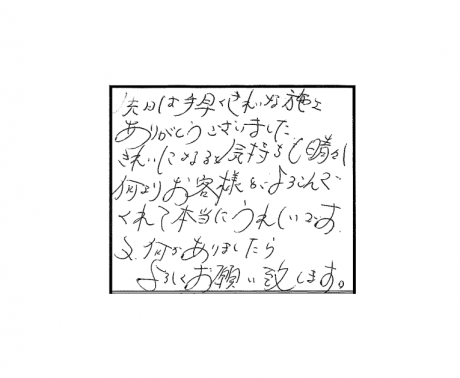 先日は手早くきれいな施工
ありがとうございました
きれいになると気持ちも晴れ
何よりお客様がよろこんで
くれて本当にうれしいです
又何かありましたら
よろしくお願い致します。